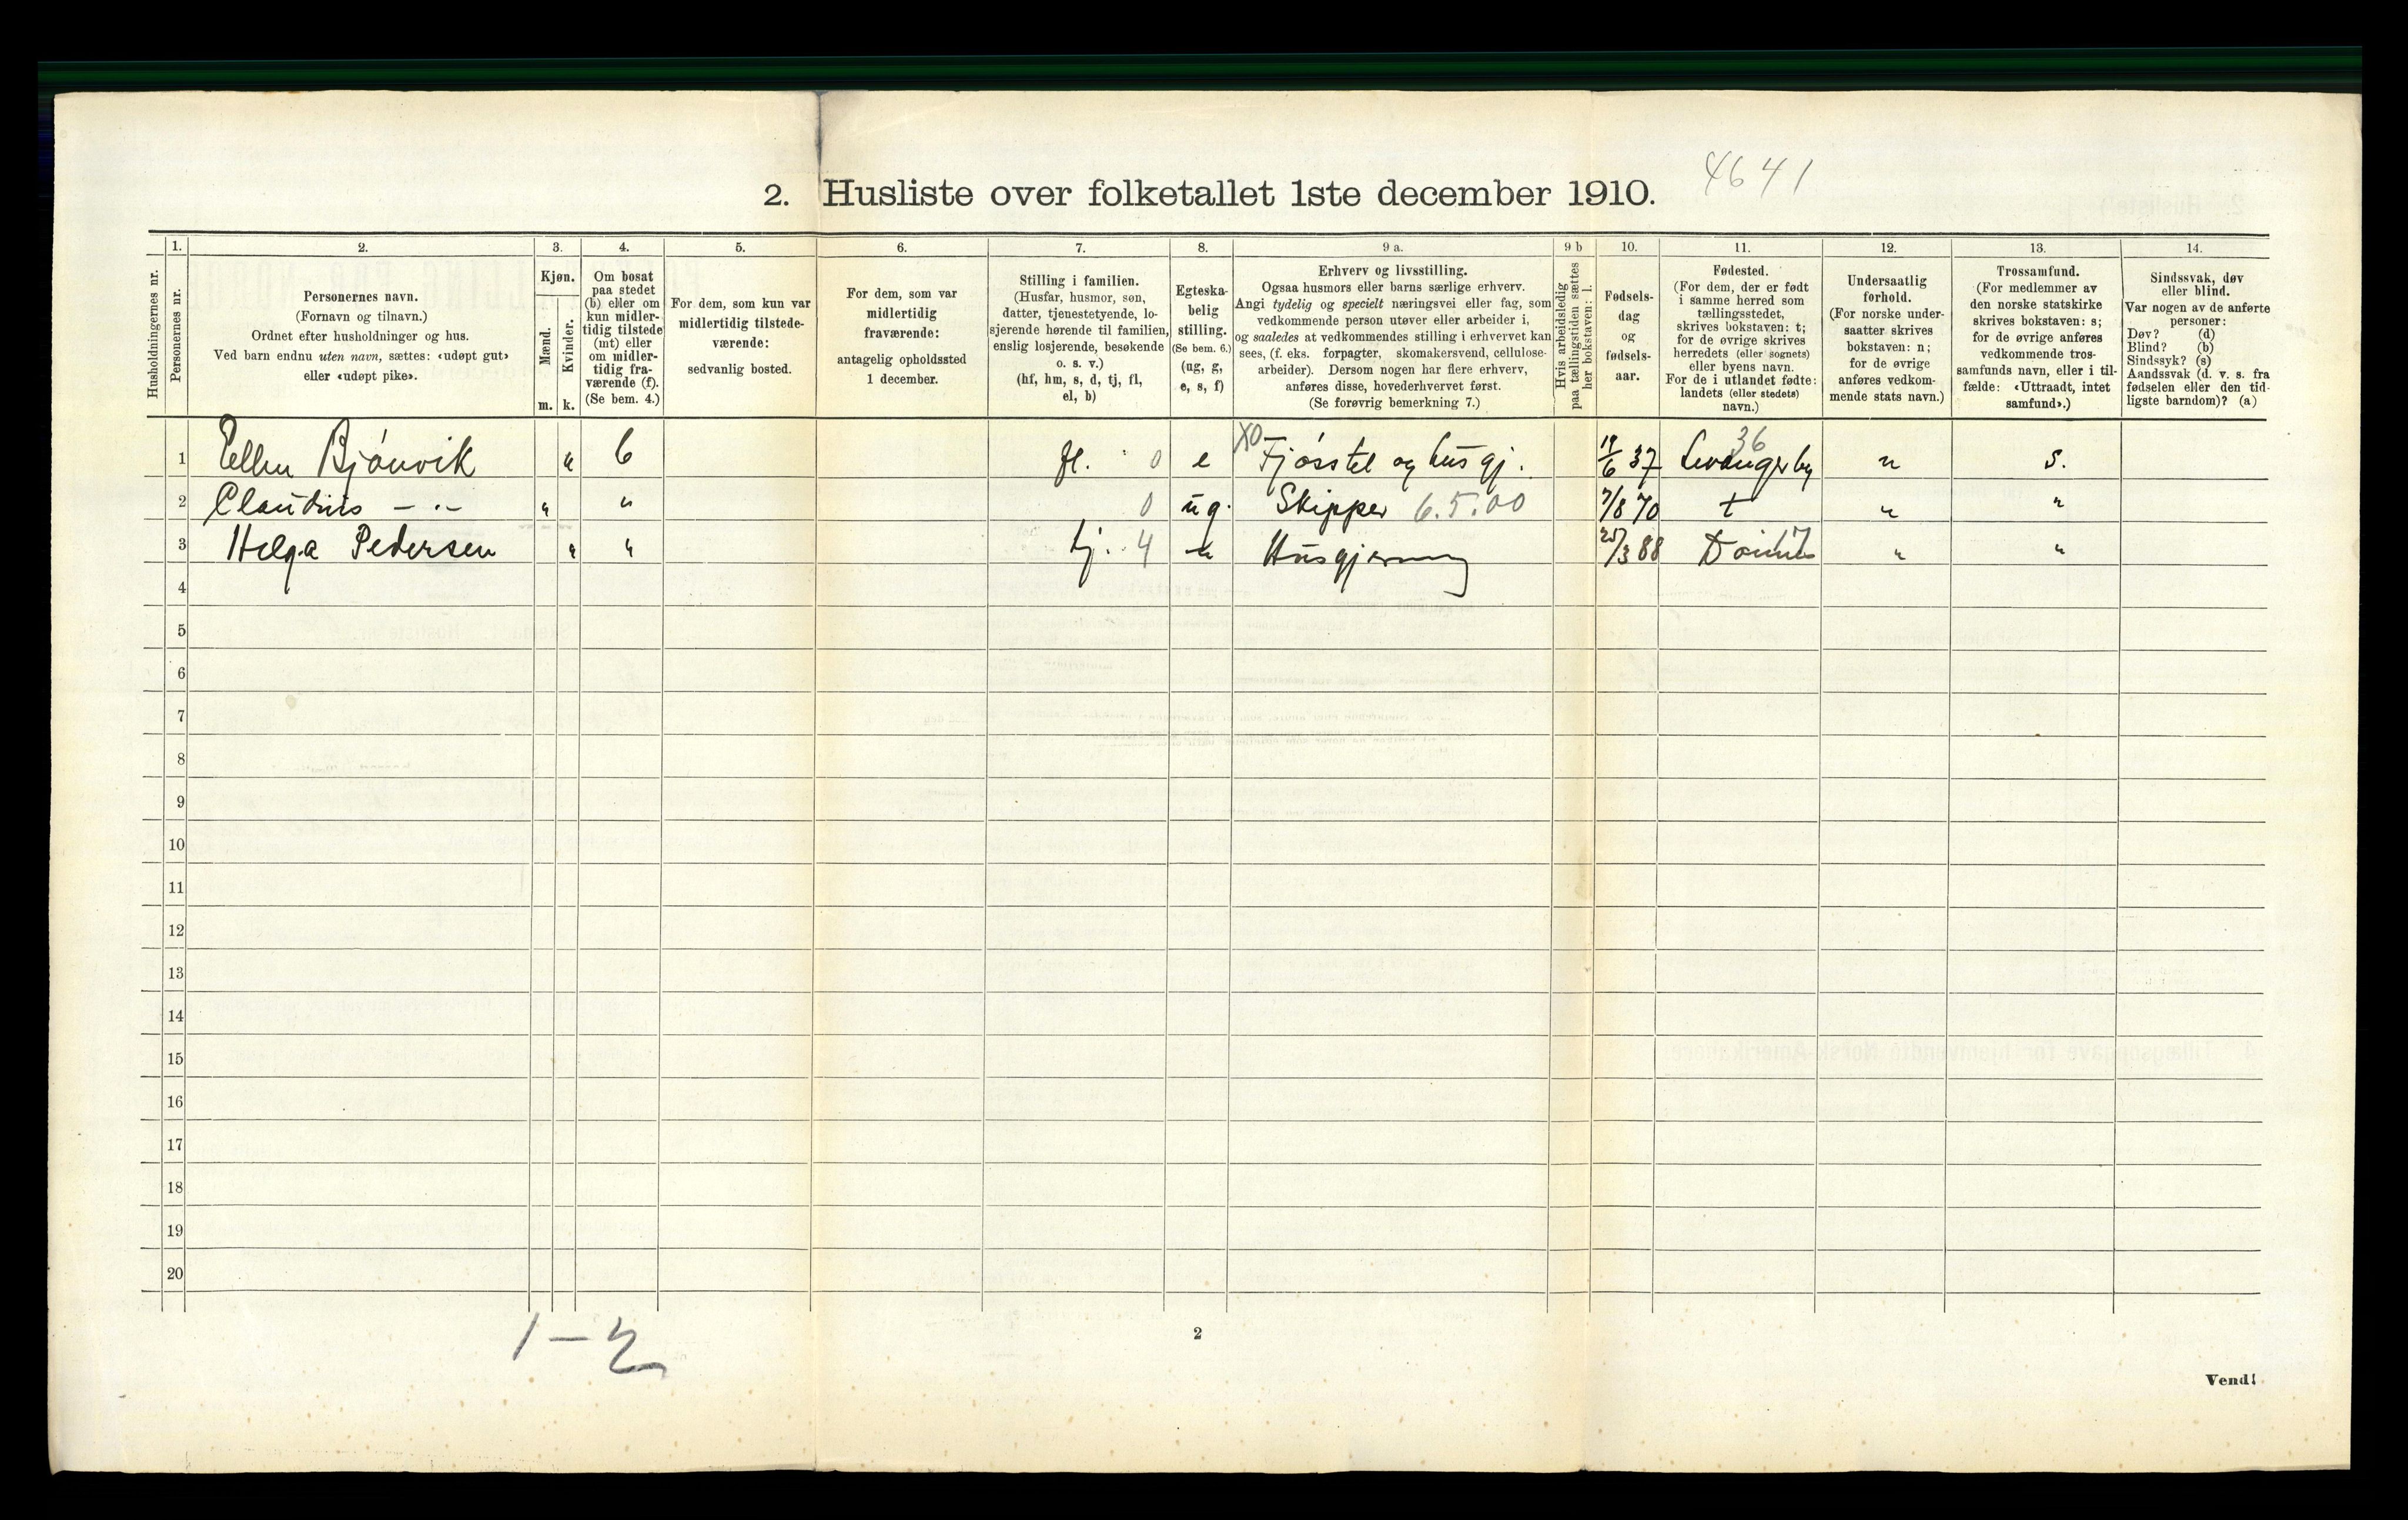 4641
2. Husliste over folketallet 1ste december 1910.
1. 2. 3. 4. 5. 6. 7. 8. 9 a. 9 b 10. 11. 12. 13. 14.
Husholdningernes nr.
Personernes nr.
Personernes navn.
(Fornavn og tilnavn.)
Ordnet efter husholdninger og hus.
Ved barn endnu uten navn, sættes: «udøpt gut»
eller «udøpt pike».
Kjøn.
Mænd.
Kvinder.
m. k.
Om bosat
paa stedet
(b) eller om
kun midler-
tidig tilstede
(mt) eller
om midler-
tidig fra-
værende (f).
(Se bem. 4.)
For dem, som kun var
midlertidig tilstede-
værende:
sedvanlig bosted.
For dem, som var
midlertidig
fraværende:
antagelig opholdssted
1 december.
Stilling i familien.
(Husfar, husmor, søn,
datter, tjenestetyende, lo-
sjerende hørende til familien,
enslig losjerende, besøkende
o. s. v.)
(hf, hm, s, d, tj, fl,
el, b)
Egteska-
belig
stilling.
(Se bem. 6.)
(ug, g,
e, s, f)
Erhverv og livsstilling.
Ogsaa husmors eller barns særlige erhverv.
Angi tydelig og specielt næringsvei eller fag, som
vedkommende person utøver eller arbeider i,
og saaledes at vedkommendes stilling i erhvervet kan
sees, (f. eks. forpagter, skomakersvend, cellulose-
arbeider). Dersom nogen har flere erhverv,
anføres disse, hovederhvervet først.
(Se forøvrig bemerkning 7.)
Hvis arbeidsledig
paa tællingstiden sættes
her bokstaven: l.
Fødsels-
dag
og
fødsels-
aar.
Fødested.
(For dem, der er født
i samme herred som
tællingsstedet,
skrives bokstaven: t;
for de øvrige skrives
herredets (eller sognets)
eller byens navn.
For de i utlandet fødte:
landets (eller stedets)
navn.)
Undersaatlig
forhold.
(For norske under-
saatter skrives
bokstaven: n;
for de øvrige
anføres vedkom-
mende stats navn.)
Trossamfund.
(For medlemmer av
den norske statskirke
skrives bokstaven: s;
for de øvrige anføres
vedkommende tros-
samfunds navn, eller i til-
fælde: «Uttraadt, intet
samfund».)
Sindssvak, døv
eller blind.
Var nogen av de anførte
personer:
Døv? (d)
Blind? (b)
Sindssyk? (s)
Aandssvak (d. v. s. fra
fødselen eller den tid-
ligste barndom)? (a)
1 Ellen Bjónvik " b fl. 0 e XO Fjósstel og husgj. 19/6 37 36 Levanger by n s.
2 Claudius — " — " " 0 ug. Skipper 6.5.00 7/8 70 t " "
3 Helga Pedersen " " tj. 4 " Husgjerning 25/3 88 17 " "
4
5
6
7
8
9
10
11
12
13
14
15
16
17
18
19
20
1 — 2
2
Vend!